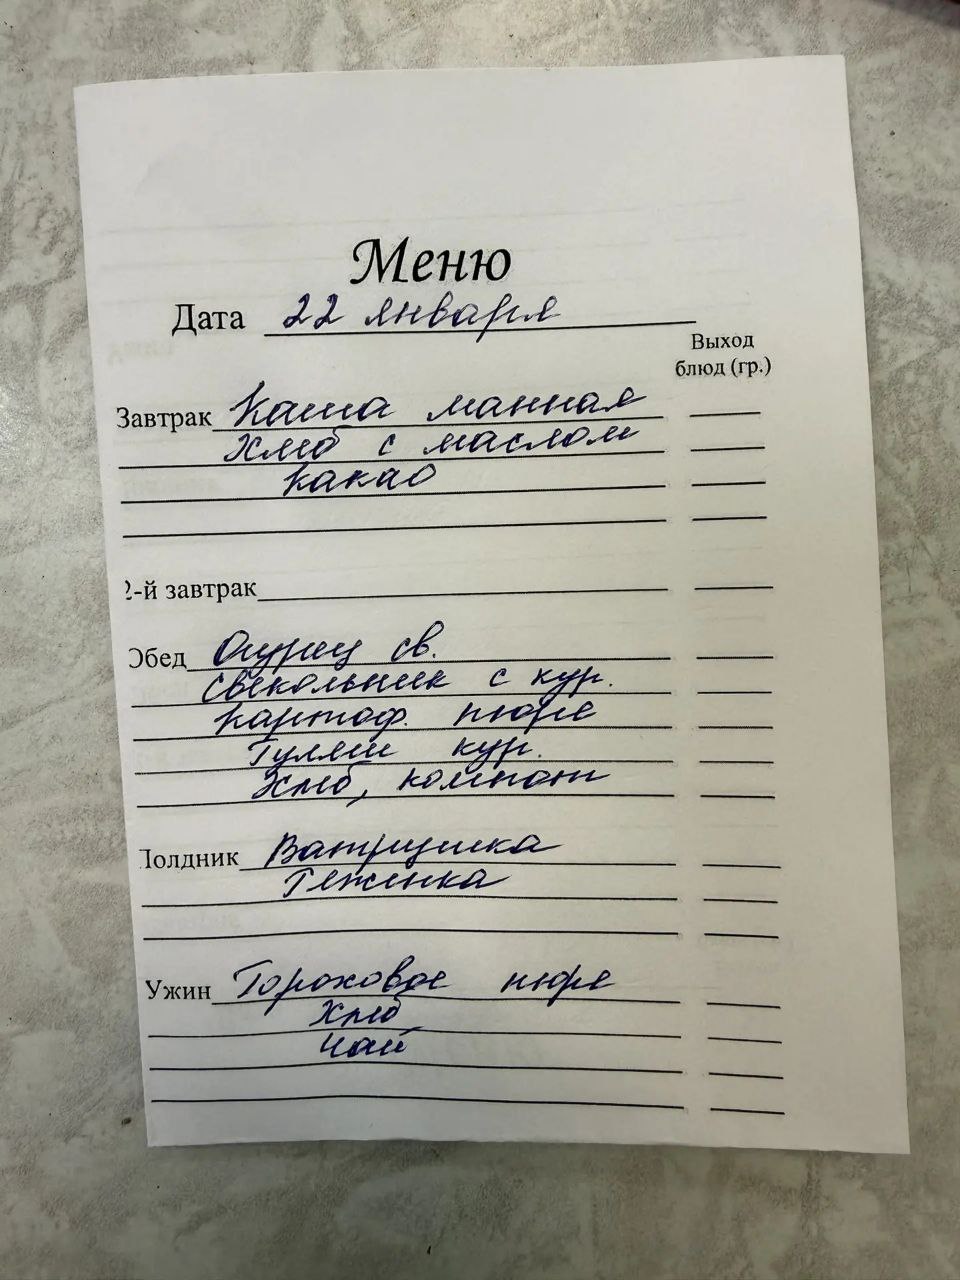 Меню
Дата 22 января
Выход
блюд (гр.)
Завтрак Каша манная
Хлеб с маслом
Какао
2-й завтрак
Обед Огурец св.
Свекольник с кур.
Картоф. пюре
Гуляш кур.
Хлеб, компот
Полдник Ватрушка
Ужин Гороховое пюре
Хлеб
Чай